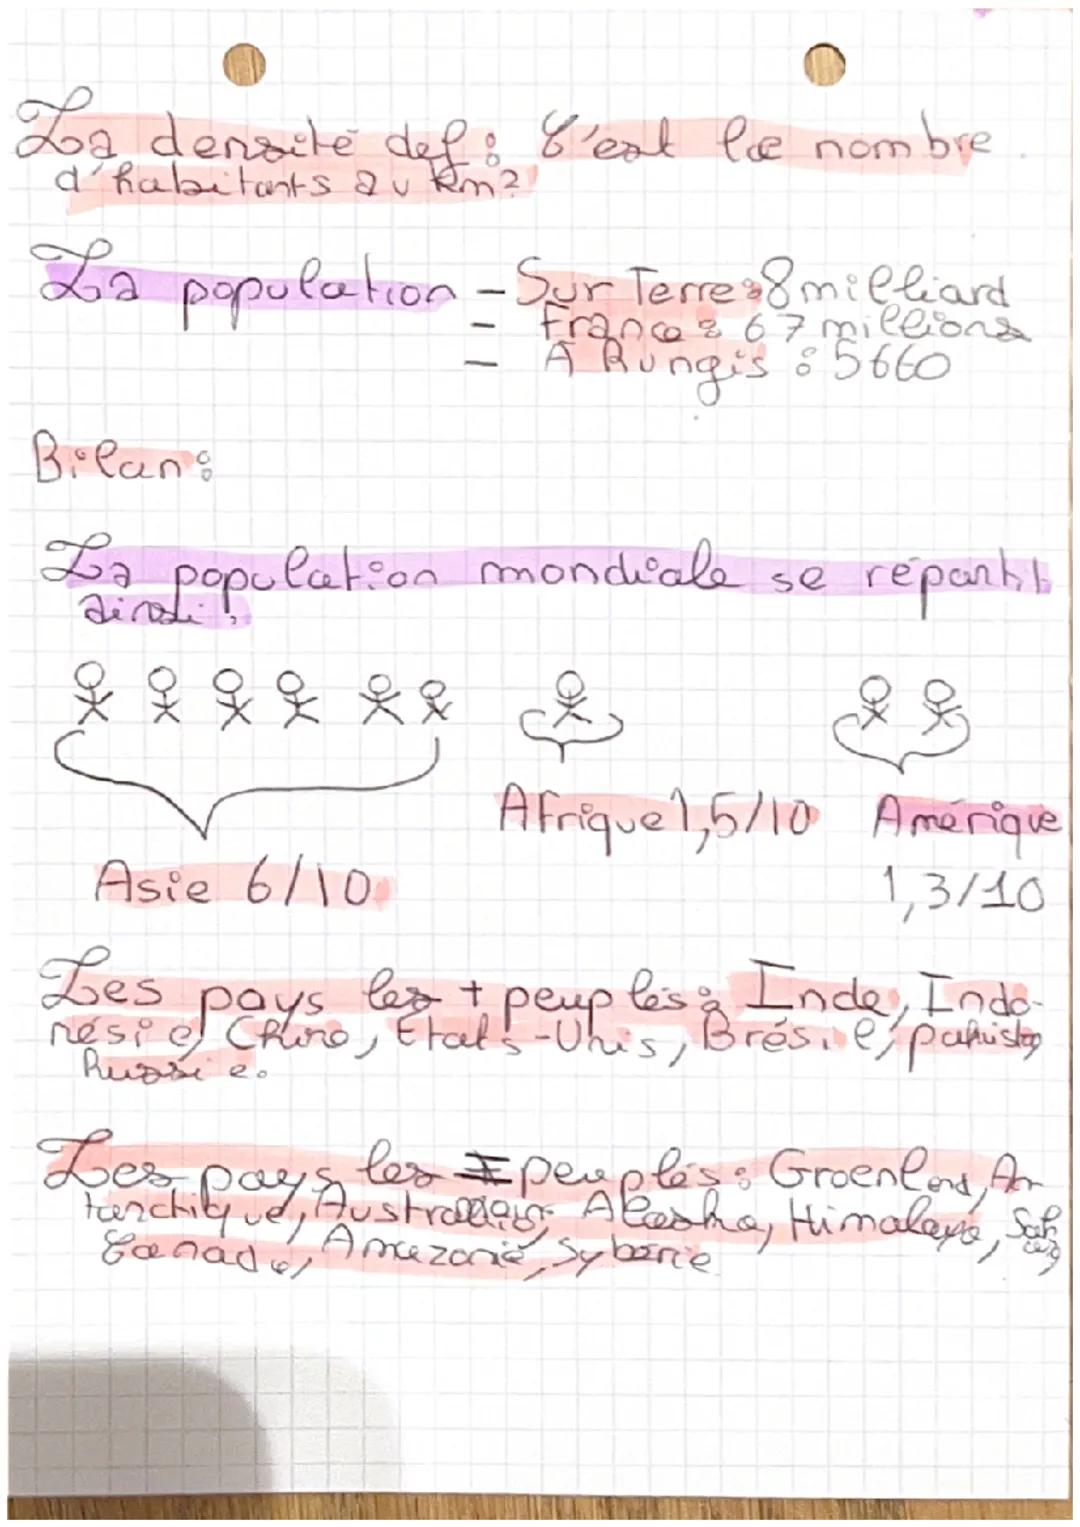 La densité def: C'est le nombre
d'habitants au km²
La population - Sur Terre: 8 milliard
- France: 67 millions
- A Rungis: 5660
Bilan:
La population mondiale se répartit
ainsi:
Afrique 1,5/10 Amérique
Asie 6/10 1,3/10
Les pays les + peuplés: Inde, Indo-
nésie, Chine, Etats-Unis, Brésil,
Russie.
Les pays les peuplés: Groenland, An
tarctique, Alaska, Himalaya,
Canada, Amazonie, Sybérie